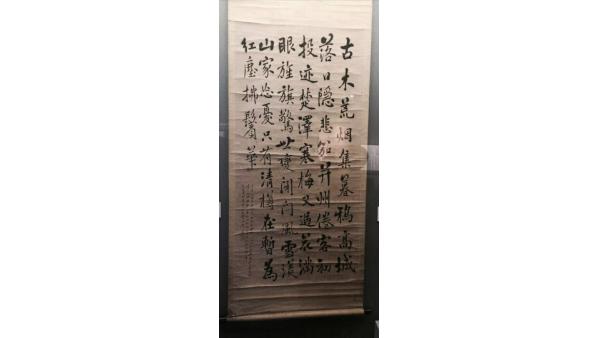 古木荒烟集暮鴉高城
落日隱悲笳并州倦客初
投迹楚澤寒梅又過花滿
眼旌旗驚世變閉門風雪羨
山家忘憂只有清樽在暫為
紅塵拂鬢華